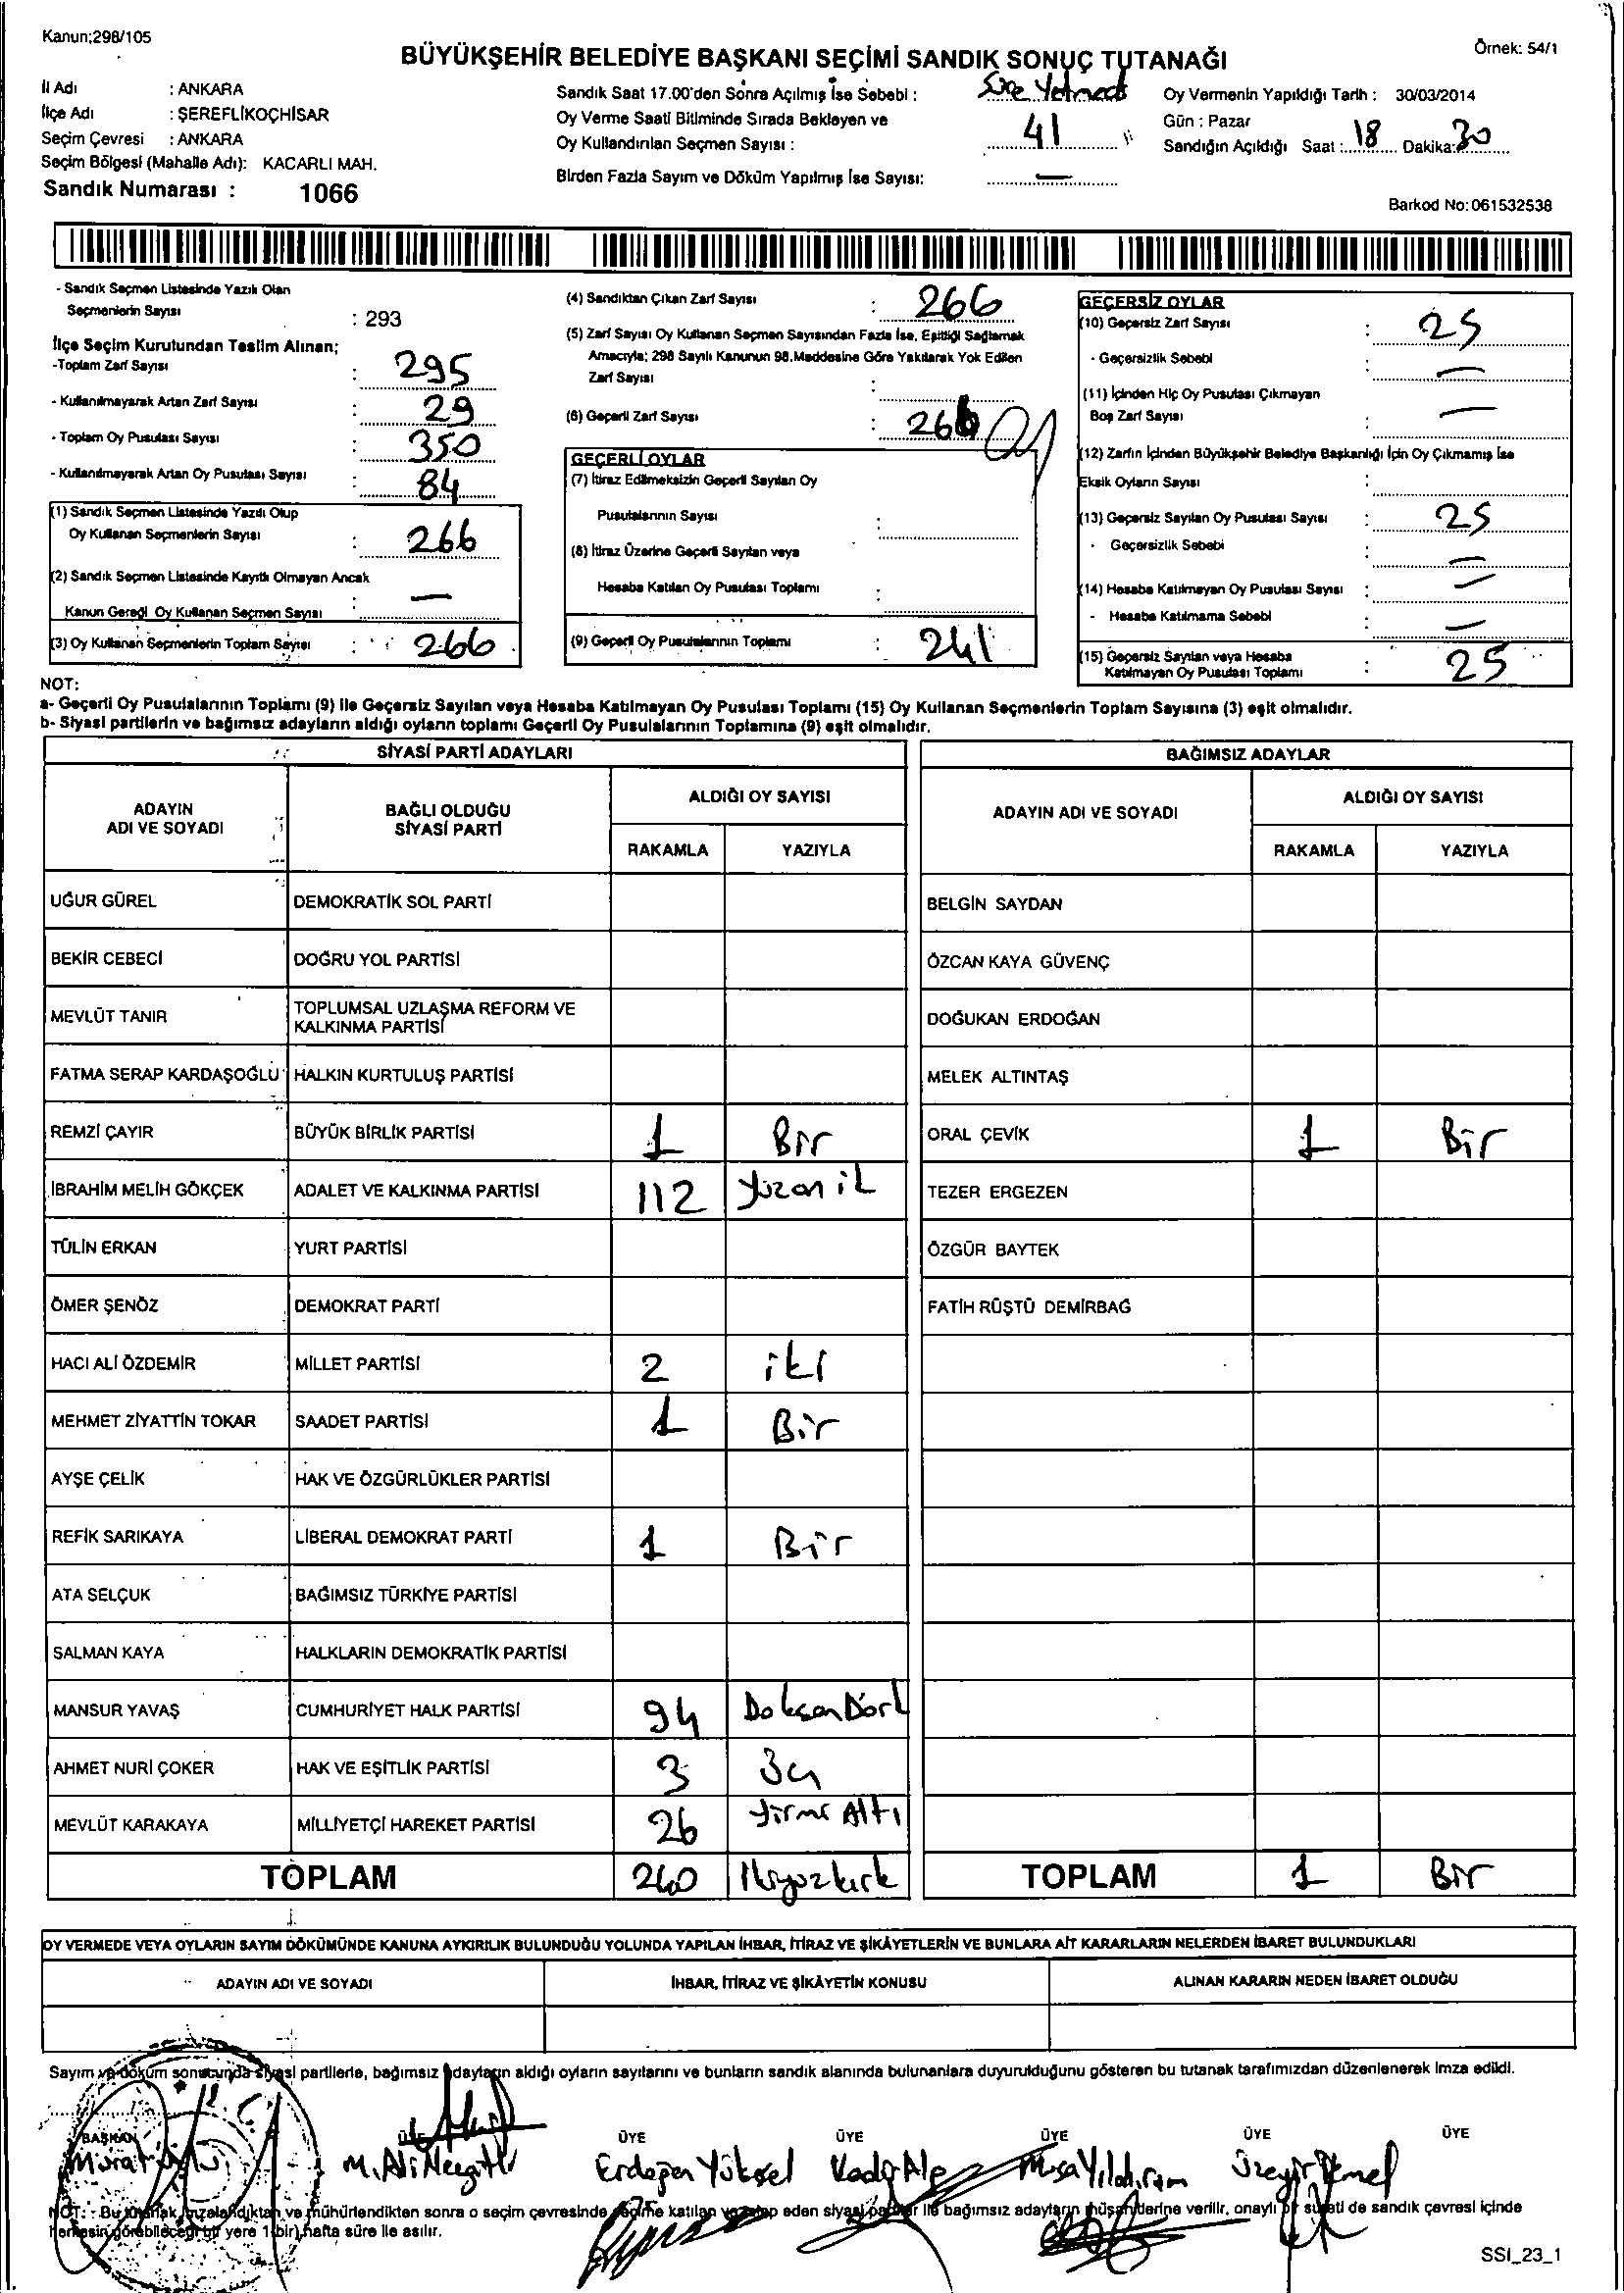 Kanun;298/105
Örnek: 54/1
BÜYÜKŞEHİR BELEDİYE BAŞKANI SEÇİMİ SANDIK SONUÇ TUTANAĞI
İl Adı : ANKARA
İlçe Adı : ŞEREFLİKOÇHİSAR
Seçim Çevresi : ANKARA
Seçim Bölgesi (Mahalle Adı): KACARLI MAH.
Sandık Numarası : 1066
Sandık Saat 17.00'den Sonra Açılmış İse Sebebi : Süre Yetmedi
Oy Verme Saati Bitiminde Sırada Bekleyen ve
Oy Kullandırılan Seçmen Sayısı : 41
Birden Fazla Sayım ve Döküm Yapılmış İse Sayısı: —
Oy Vermenin Yapıldığı Tarih : 30/03/2014
Gün : Pazar
Sandığın Açıldığı Saat : 18 Dakika: 30
Barkod No: 061532538
- Sandık Seçmen Listesinde Yazılı Olan
Seçmenlerin Sayısı : 293
İlçe Seçim Kurulundan Teslim Alınan;
-Toplam Zarf Sayısı : 295
- Kullanılmayarak Artan Zarf Sayısı : 29
- Toplam Oy Pusulası Sayısı : 350
- Kullanılmayarak Artan Oy Pusulası Sayısı : 84
(1) Sandık Seçmen Listesinde Yazılı Olup
Oy Kullanan Seçmenlerin Sayısı : 266
(2) Sandık Seçmen Listesinde Kayıtlı Olmayan Ancak
Kanun Gereği Oy Kullanan Seçmen Sayısı : —
(3) Oy Kullanan Seçmenlerin Toplam Sayısı : 266
(4) Sandıktan Çıkan Zarf Sayısı : 266
(5) Zarf Sayısı Oy Kullanan Seçmen Sayısından Fazla İse, Eşitliği Sağlamak
Amacıyla; 298 Sayılı Kanunun 98.Maddesine Göre Yakılarak Yok Edilen
Zarf Sayısı :
(6) Geçerli Zarf Sayısı : 266
GEÇERLİ OYLAR
(7) İtiraz Edilmeksizin Geçerli Sayılan Oy
Pusulalarının Sayısı :
(8) İtiraz Üzerine Geçerli Sayılan veya
Hesaba Katılan Oy Pusulası Toplamı :
(9) Geçerli Oy Pusulalarının Toplamı : 241
GEÇERSİZ OYLAR
(10) Geçersiz Zarf Sayısı : 25
- Geçersizlik Sebebi : —
(11) İçinden Hiç Oy Pusulası Çıkmayan
Boş Zarf Sayısı : —
(12) Zarfın İçinden Büyükşehir Belediye Başkanlığı İçin Oy Çıkmamış İse
Eksik Oyların Sayısı :
(13) Geçersiz Sayılan Oy Pusulası Sayısı : 25
- Geçersizlik Sebebi : —
(14) Hesaba Katılmayan Oy Pusulası Sayısı : —
- Hesaba Katılmama Sebebi : —
(15) Geçersiz Sayılan veya Hesaba
Katılmayan Oy Pusulası Toplamı : 25
NOT:
a- Geçerli Oy Pusulalarının Toplamı (9) ile Geçersiz Sayılan veya Hesaba Katılmayan Oy Pusulası Toplamı (15) Oy Kullanan Seçmenlerin Toplam Sayısına (3) eşit olmalıdır.
b- Siyasi partilerin ve bağımsız adayların aldığı oyların toplamı Geçerli Oy Pusulalarının Toplamına (9) eşit olmalıdır.
SİYASİ PARTİ ADAYLARI
ADAYIN ADI VE SOYADI
BAĞLI OLDUĞU SİYASİ PARTİ
ALDIĞI OY SAYISI
RAKAMLA YAZIYLA
UĞUR GÜREL DEMOKRATİK SOL PARTİ
BEKİR CEBECİ DOĞRU YOL PARTİSİ
MEVLÜT TANIR TOPLUMSAL UZLAŞMA REFORM VE
KALKINMA PARTİSİ
FATMA SERAP KARDAŞOĞLU HALKIN KURTULUŞ PARTİSİ
REMZİ ÇAYIR BÜYÜK BİRLİK PARTİSİ 1 Bir
İBRAHİM MELİH GÖKÇEK ADALET VE KALKINMA PARTİSİ 112 Yüzon
TÜLİN ERKAN YURT PARTİSİ
ÖMER ŞENÖZ DEMOKRAT PARTİ
HACI ALİ ÖZDEMİR MİLLET PARTİSİ 2 iki
MEHMET ZİYATTİN TOKAR SAADET PARTİSİ 1 Bir
AYŞE ÇELİK HAK VE ÖZGÜRLÜKLER PARTİSİ
REFİK SARIKAYA LİBERAL DEMOKRAT PARTİ 1 Bir
ATA SELÇUK BAĞIMSIZ TÜRKİYE PARTİSİ
SALMAN KAYA HALKLARIN DEMOKRATİK PARTİSİ
MANSUR YAVAŞ CUMHURİYET HALK PARTİSİ 94 Doksan Dört
AHMET NURİ ÇOKER HAK VE EŞİTLİK PARTİSİ 3 Üç
MEVLÜT KARAKAYA MİLLİYETÇİ HAREKET PARTİSİ 26 Yirmi Altı
TOPLAM 240 İkiyüzkırk
BAĞIMSIZ ADAYLAR
ADAYIN ADI VE SOYADI
ALDIĞI OY SAYISI
RAKAMLA YAZIYLA
BELGİN SAYDAN
ÖZCAN KAYA GÜVENÇ
DOĞUKAN ERDOĞAN
MELEK ALTINTAŞ
ORAL ÇEVİK 1 Bir
TEZER ERGEZEN
ÖZGÜR BAYTEK
FATİH RÜŞTÜ DEMİRBAĞ
TOPLAM 1 Bir
OY VERMEDE VEYA OYLARIN SAYIM DÖKÜMÜNDE KANUNA AYKIRILIK BULUNDUĞU YOLUNDA YAPILAN İHBAR, İTİRAZ VE ŞİKÂYETLERİN VE BUNLARA AİT KARARLARIN NELERDEN İBARET BULUNDUKLARI
ADAYIN ADI VE SOYADI İHBAR, İTİRAZ VE ŞİKÂYETİN KONUSU ALINAN KARARIN NEDEN İBARET OLDUĞU
Sayım ve döküm sonucunda siyasi partilerle, bağımsız adayların aldığı oyların sayılarını ve bunların sandık alanında bulunanlara duyurulduğunu gösteren bu tutanak tarafımızdan düzenlenerek imza edildi.
BAŞKAN ÜYE ÜYE ÜYE ÜYE ÜYE ÜYE
Murat M. Ali Erdoğan Yüksel Kadir Alp Musa Yıldırım Üzeyir Temel
NOT: - Bu tutanak, imzalandıktan ve mühürlendikten sonra o seçim çevresinde seçime katılan ve talep eden siyasi partiler ile bağımsız adayların müşahitlerine verilir, onaylı bir sureti de sandık çevresi içinde
herkesin görebileceği bir yere 1(bir) hafta süre ile asılır.
SSI_23_1